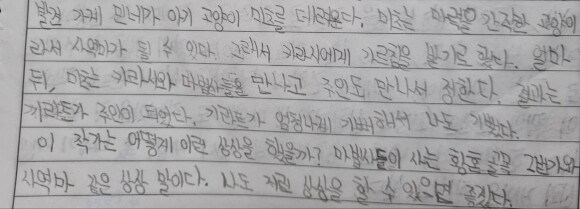 빨간 가게 민너가 아기 고양이 미조를 데려온다. 미조는 마력을 간직한 고양이
라서 사역마가 될 수 있다. 그래서 키라시에게 가르침을 받기로 한다. 얼마
뒤, 미조는 키라시와 마법사들을 만나고 주인도 만나서 정한다. 결과는
키라톤가 주인이 되었다. 키라톤가 엄청나게 기뻐해서 나도 기뻤다.
이 작가는 어떻게 이런 상상을 했을까? 마법사들이 사는 황혼 골목 그법가와
사역마 같은 상상 말이다. 나도 저런 상상을 할 수 있으면 좋겠다.